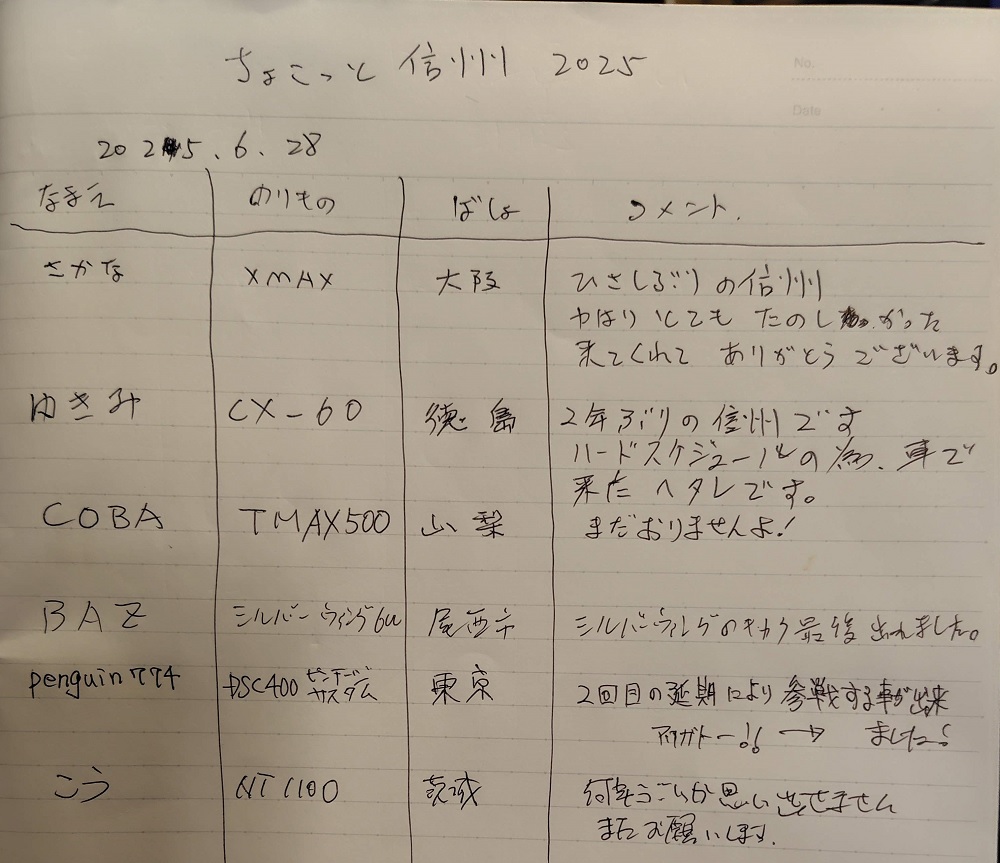 No.
Date
ちょこっと 信州 2025
2025.6.28
なまえ のりもの ばしょ コメント.
さかな XMAX 大阪 ひさしぶりの信州
やはり とても たのしかった
来てくれて ありがとうございます。
ゆきみ CX-60 徳島 2年ぶりの信州です
ハードスケジュールの為、車で
来た ヘタレです。
COBA TMAX500 山梨 まだおりませんよ!
BAZ シルバーウィング600 尾西市 シルバーウィングのキカク最後 出れました。
penguin774 DSC400 ビンテージ
カスタム 東京 2回目の延期により参戦する事が出来
アリガトー!! → ました!
こう NT1100 茨城 思い出せません
またお願いします.